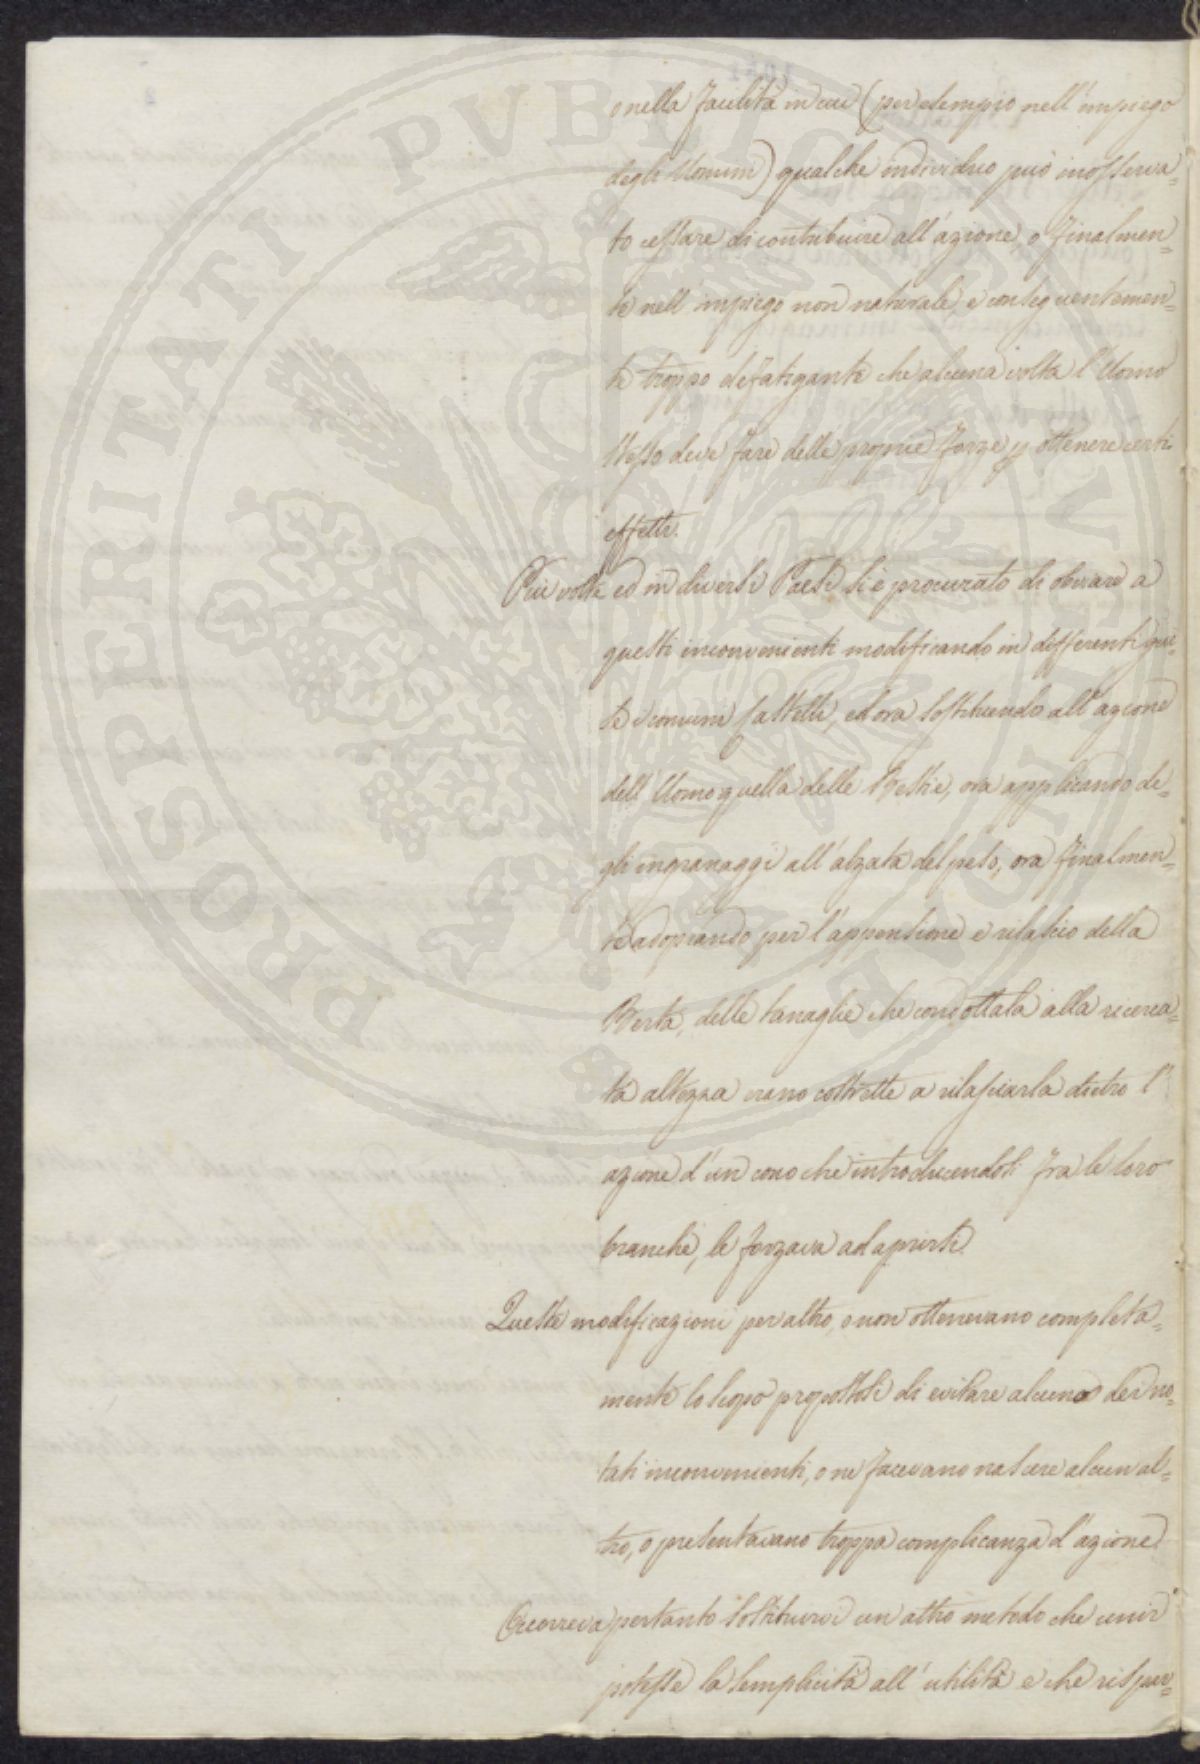 o nella facilità in cui (per esempio nell'impiego
degli Uomini) qualche individuo può inosserva=
to cessare di contribuire all'azione, o finalmen=
te nell'impiego non naturale, e conseguentemen=
te troppo defatigante che alcuna volta l'Uomo
stesso deve fare delle proprie forze p ottenere certi
effetti.
Più volte ed in diversi Paesi si è procurato di obviare a
questi inconvenienti modificando in differenti gui=
se i comuni Castelli, ed ora sostituendo all'azione
dell'Uomo quella delle Bestie, ora applicando de=
gli ingranaggi all'alzata del peso, ora finalmen=
te adoprando per l'appensione e rilascio della
Berta, delle tanaglie che condottala alla ricerca=
ta altezza erano costrette a rilasciarla dietro l'
azione d'un cono che introducendosi fra le loro
branche, le forzava ad aprirsi.
Queste modificazioni per altro, o non ottenevano completa=
mente lo scopo propostosi di evitare alcuno dei no=
tati inconvenienti, o ne facevano nascere alcun al=
tro, o presentavano troppa complicanza d'azione
Occorreva pertanto sostituirvi un altro metodo che unir
potesse la semplicità all'utilità e che rispar=
PROSPERITATI PVBLICAE